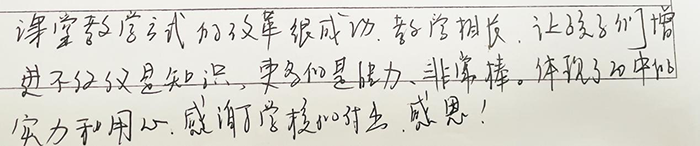 课堂教学方式的改革很成功、教学相长、让孩子们增
进不仅仅是知识、更多的是能力、非常棒。体现了四中的
实力和用心、感谢学校的付出、感恩！